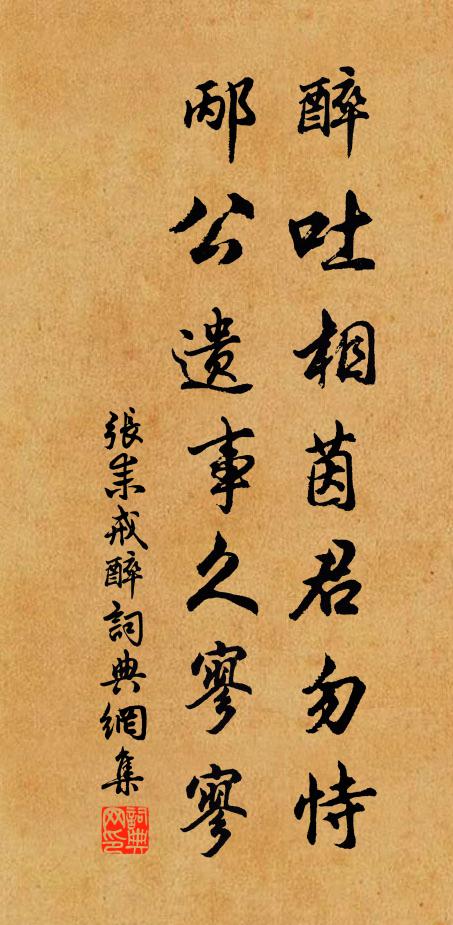 醉吐相茵君勿恃
邴公遗事久寥寥
張耒戒醉詞典網集
詞典
网印